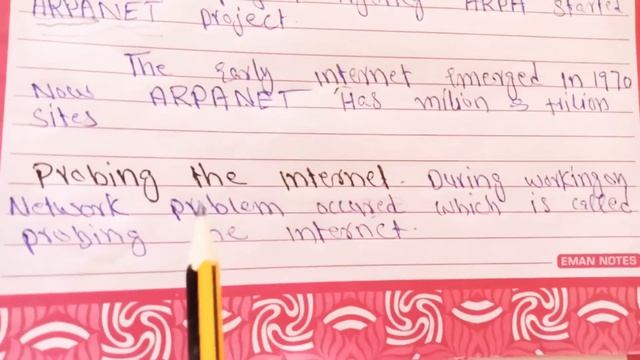 ARPANET project. ARPA started
The Early internet Emerged in 1970
Now ARPANET Has milion & trilion
Sites
probing the internet. During working on
Network problem occured which is called
probing he internet.
EMAN NOTES